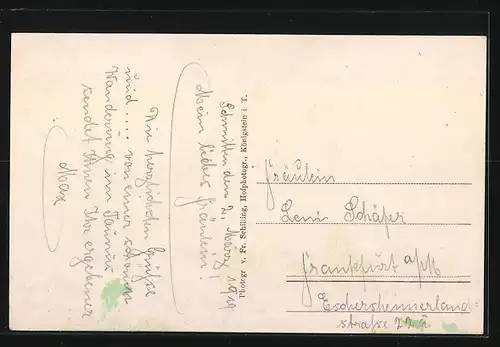 Schmitten den 2. März 1919
Mein liebes Fräulein!
Die herzlichsten Grüße
und.... von einer schönen
Wanderung im Taunus
sendet Ihnen Ihr ergebener
Max
Photogr. v. Fr. Schilling, Hofphotogr., Königstein i. T.
Fräulein
Leni Schäfer
Frankfurt a/M
Eschersheimerland-
straße